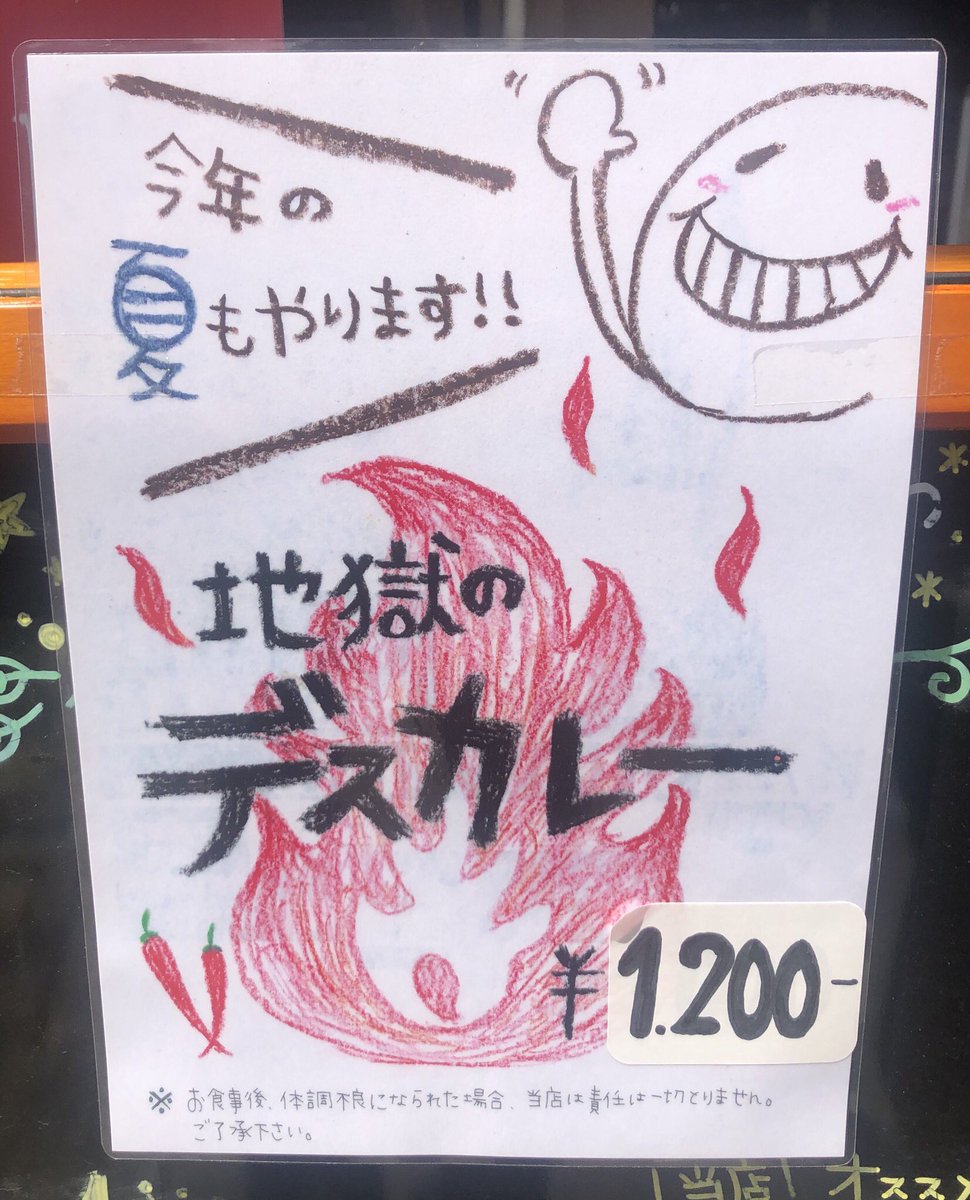 今年の
夏もやります!!
地獄の
デスカレー
¥1.200-
※ お食事後、体調不良になられた場合、当店は責任は一切とりません。
ご了承下さい。
当店 オススメ